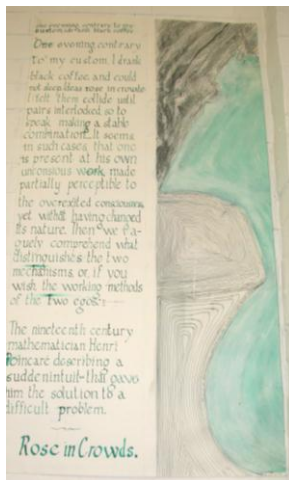 One evening contrary
to my custom, I drank
black coffee, and could
not sleep. Ideas rose in crowds
I felt them collide until
pairs interlocked, so to
speak, making a stable
combination. It seems
in such cases, that one
is present at his own
unconsious work, made
partially perceptible to
the overexcited consciousness,
yet without having changed
its nature. Then we va-
guely comprehend what
distinguishes the two
mechanisms, or, if you
wish the working methods
of the two egos.
The nineteenth century
mathematician Henri
Poincare describing a
sudden intuit- that gave
him the solution to a
difficult problem.
Rose in Crowds.